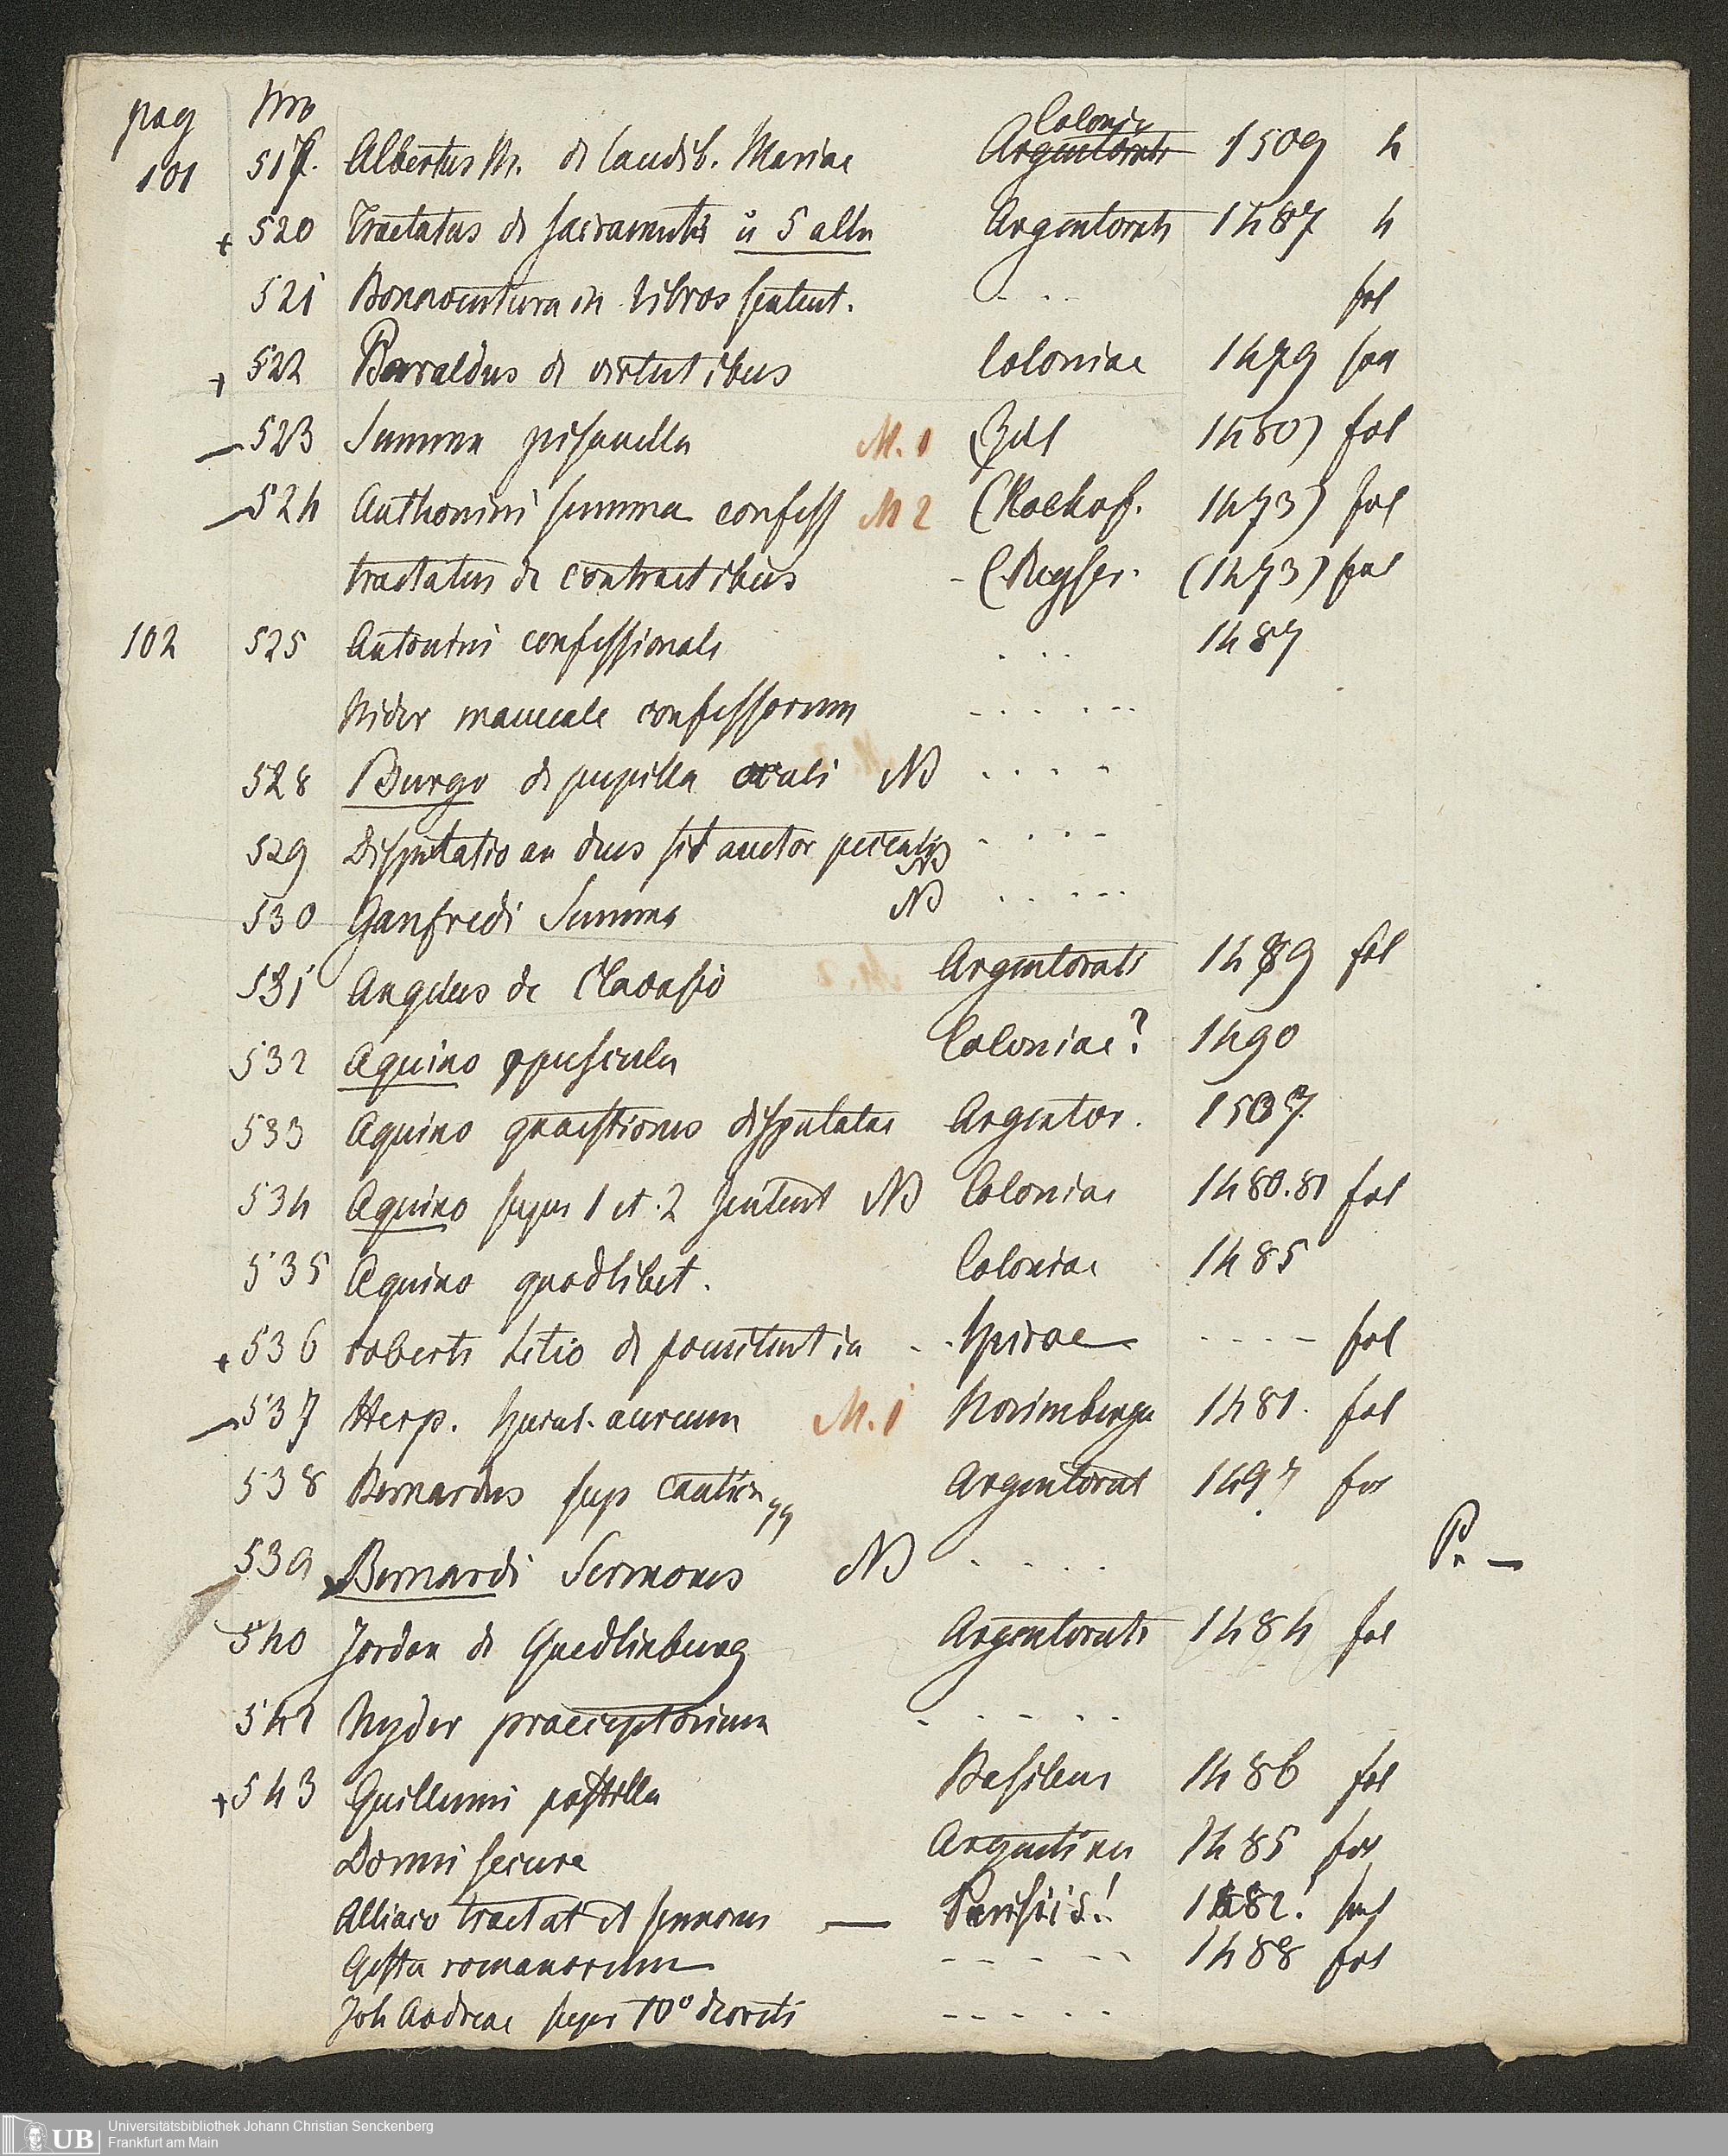 pag Nro
101 517. Albertus M. de laudib. Mariae Coloniae Argentorati 1509 4
+ 520 Tractatus de sacramentis u 5 alln Argentorati 1487 4
521 Bonaventura in libros sentent. . . . fol
+ 522 Beraldus de virtutibus Coloniae 1479 fol
– 523 Summa pisanella M. 1 (Zell 1480) fol
– 524 Anthonini summa confess M 2 (Koelhof. 1473) fol
tractatus de contractibus - (Reyser. (1473) fol
102 525 Antonini confessionale . . . 1487
Nider manuale confessorum - . . . - -
528 Burgo de pupilla oculi NB . . . -
529 Disputatio an deus sit auctor peccati NB - . . -
530 Ganfredi Summa NB . . . - -
531 Angelus de Clavasio Argentorati 1489 fol
532 Aquino opuscula Coloniae? 1490
533 Aquino quaestiones disputatae Argentor. 1507
534 Aquino super 1 et. 2 sentent NB Coloniae 1480.81 fol
535 Aquino quodlibet. Coloniae 1485
+ 536 roberti Litio de poenitentia - - Spirae - - - - fol
– 537 Herp. specul. aureum M. 1 Norimbergae 1481. fol
538 Bernardus sup cantica Argentorat 1497 fol
539 Bernardi Sermones NB - . . . P. –
540 Jordan de Quedlinburg Argentorati 1484 fol
542 Nyder praeceptorium - . - . .
+ 543 Guillermi postilla Basileae 1486 fol
Dormi secure Argentinae 1485 fol
Alliaco tractat et sermones — Parisiis! 1482! fol
Gesta romanorum - - - - - 1488 fol
Joh Andreae super 10º decreti - - - - .
UB Universitätsbibliothek Johann Christian Senckenberg
Frankfurt am Main